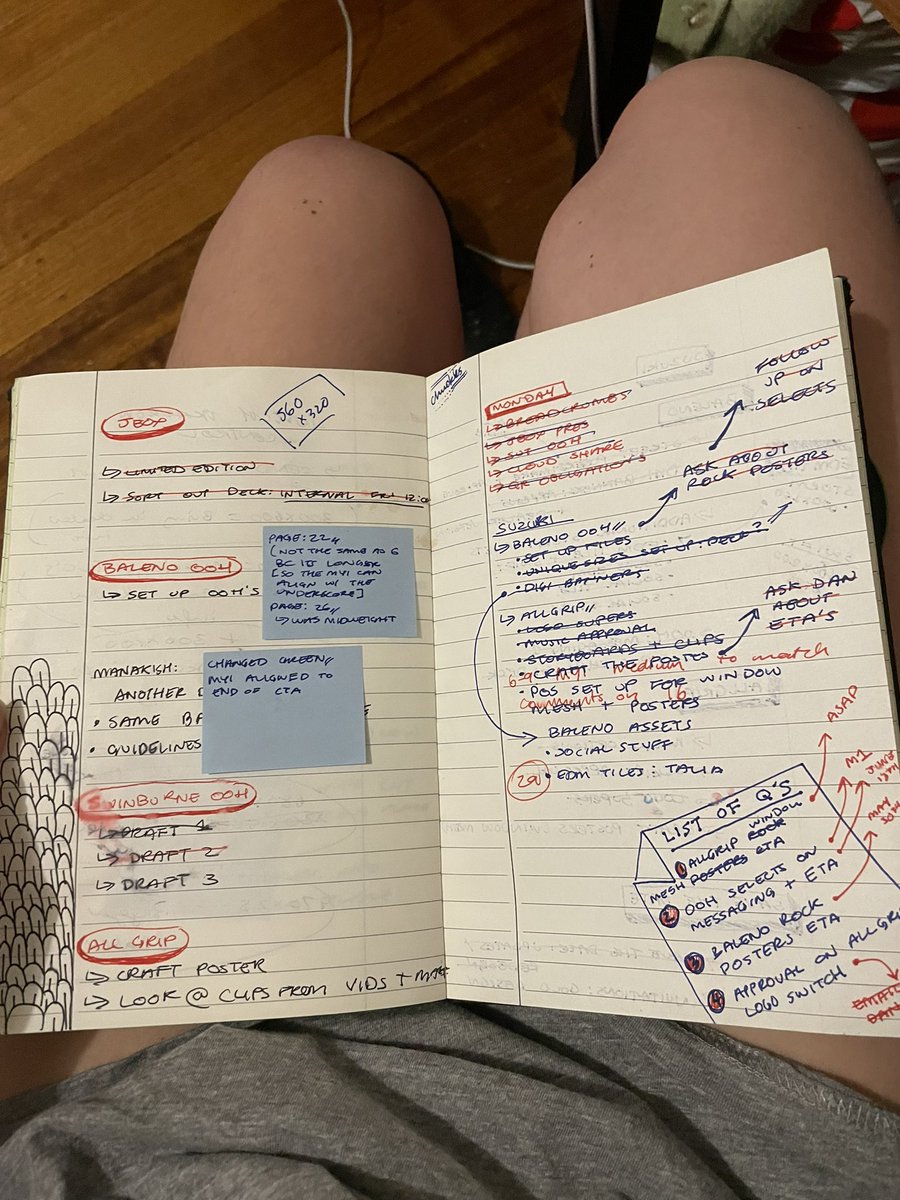 JEOP
560
x 320
↳ LIMITED EDITION
↳ SORT OUT DECK: INTERNAL FRI 12:00
BALENO OOH
↳ SET UP OOH'S
PAGE: 22//
(NOT THE SAME AS 6
BC IT LONGER
[SO THE MY1 CAN
ALIGN W/ THE
UNDERSCORE]
PAGE: 26//
↳ WAS MIDWEIGHT
MANAKISH:
ANOTHER
• SAME BA
• GUIDELINES
CHANGED GREEN//
MY1 ALIGNED TO
END OF CTA
SWINBURNE OOH
↳ DRAFT 1
↳ DRAFT 2
↳ DRAFT 3
ALL GRIP
↳ CRAFT POSTER
↳ LOOK @ CLIPS FROM VIDS +
chuckles
MONDAY
↳ BREADCRUMBS
↳ JEOP PROS
↳ SUT OOH
↳ CLOUD SHARE
↳ GR OBLIGATIONS
FOLLOW
UP ON
SELECTS
ASK ABOUT
ROCK POSTERS
SUZUKI
↳ BALENO OOH//
• SET UP FILES
• UNIQUE SIZES SET UP: DECK?
• DIGI BANNERS
↳ ALLGRIP//
• LOGO SUPERS
• MUSIC APPROVAL
• STORYBOARDS + CLIPS
• CRAFT THE POSTES
ASK DAN
ABOUT
ETA'S
69 MY1 medium to match
comments on 16
• POS SET UP FOR WINDOW
MESH + POSTERS
BALENO ASSETS
• SOCIAL STUFF
29
• EDM TILES: TALIA
LIST OF Q'S
1 ALLGRIP WINDOW
ROCK
MESH POSTERS ETA
ASAP
2 OOH SELECTS ON
MESSAGING + ETA
M1
JUNE
3 BALENO ROCK
POSTERS ETA
MAY
30TH
4 APPROVAL ON ALLGRIP
LOGO SWITCH
EMAIL
DAN